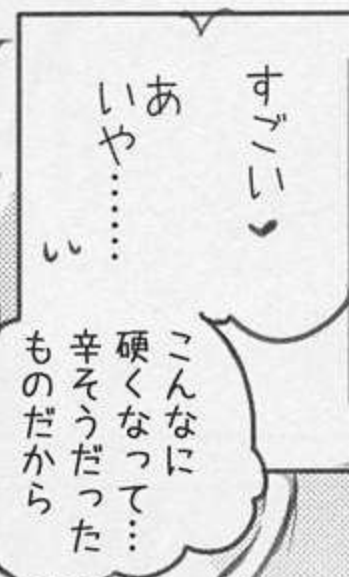 すごい♥
あ
いや……
こんなに
硬くなって…
辛そうだった
ものだから